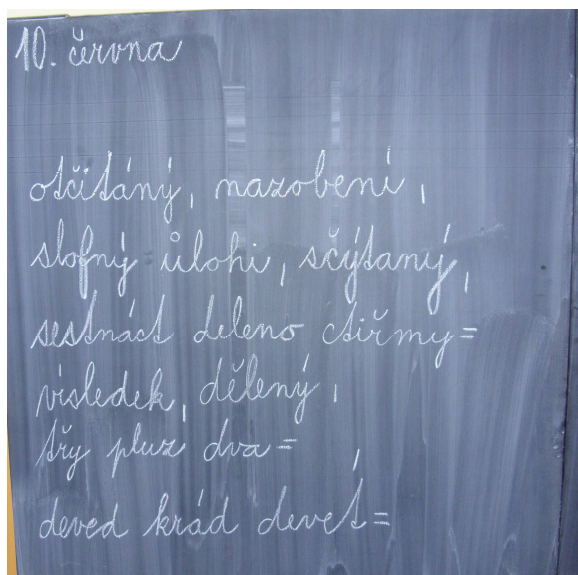 10. června
otčitáný, nazobení,
slofný ůlohi, sčýtaný,
sestnáct deleno ctiřmy=
visledek, dělený,
třy pluz dva=
deved krád deveť=